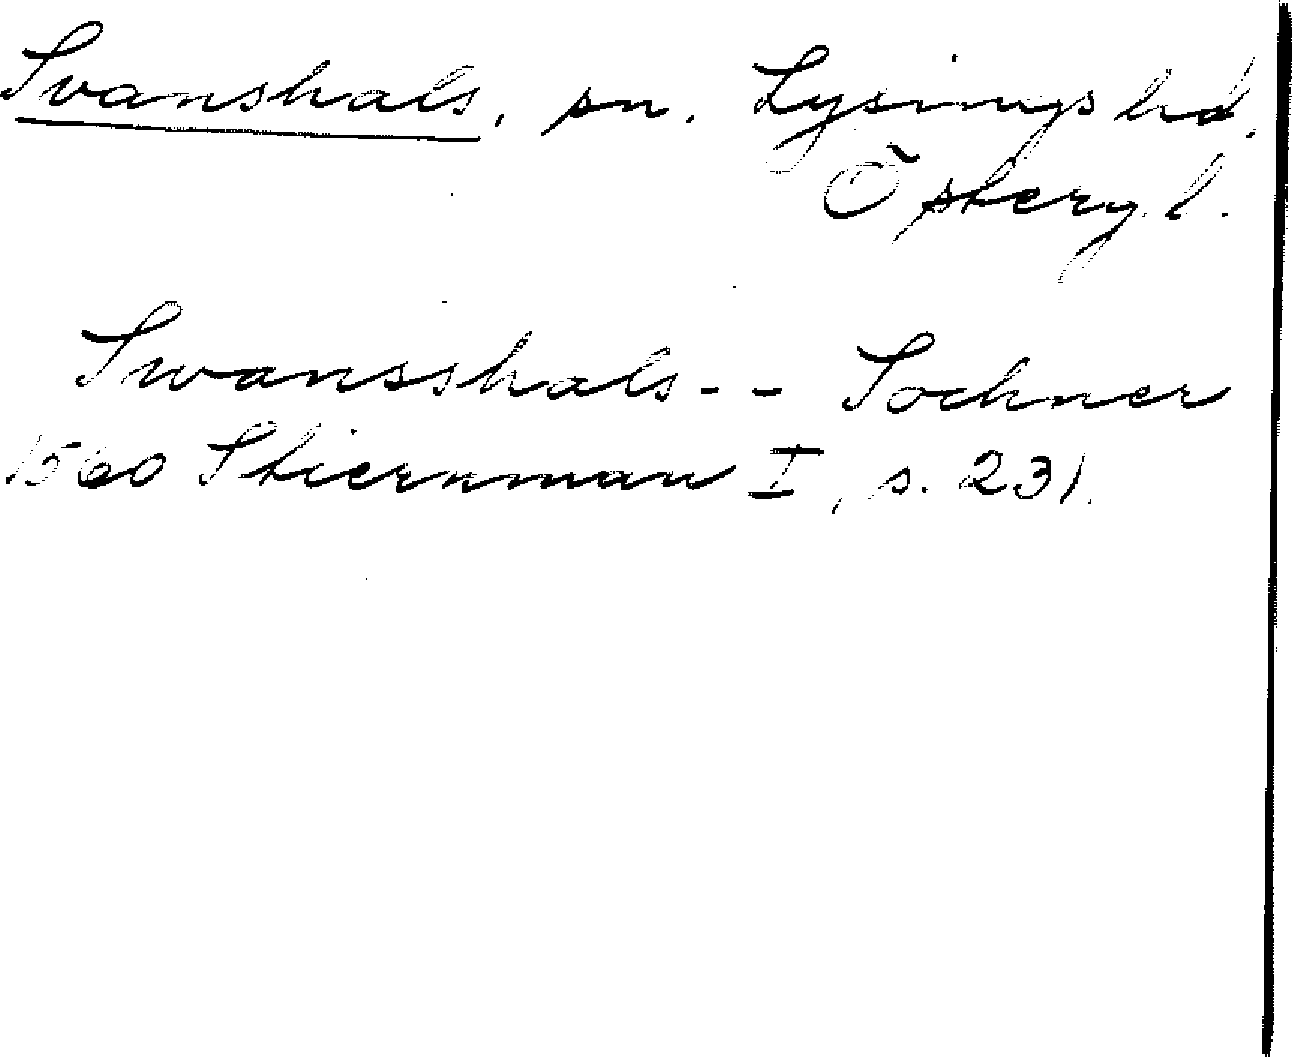 Svanshals, sn. Lysings hd.
Österg. l.
Swansshals - - Sochner
1560 Stiernman I, s. 231.